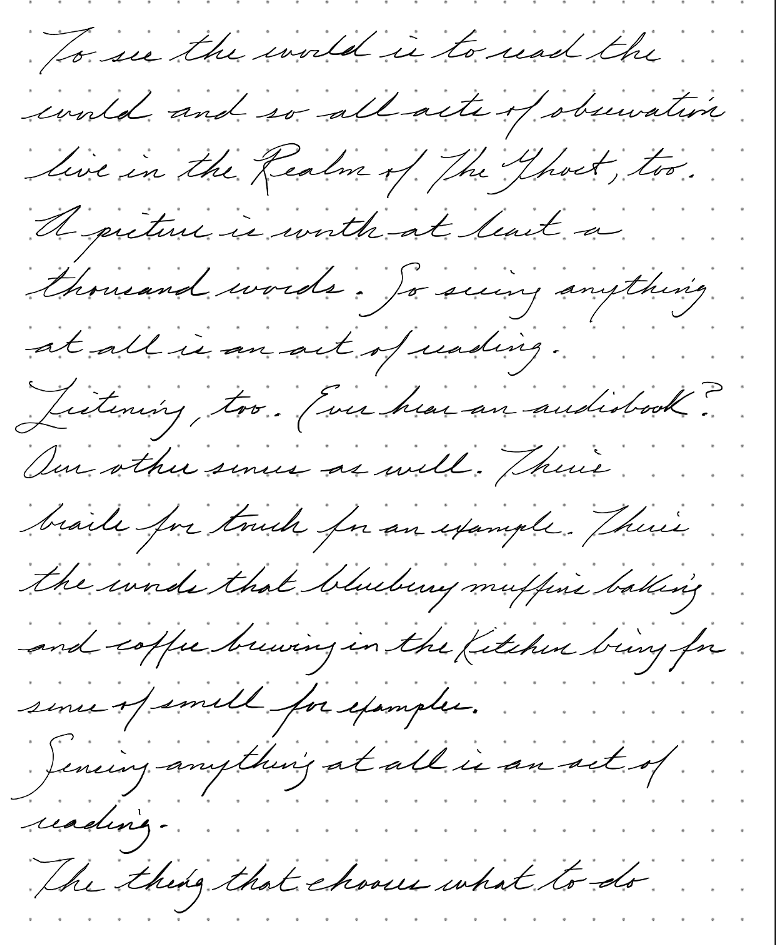 To see the world is to read the
world and so all acts of observation
live in the Realm of The Ghost, too.
A picture is worth at least a
thousand words. So seeing anything
at all is an act of reading.
Listening, too. Ever hear an audiobook?
Our other senses as well. There's
braile for touch for an example. There's
the words that blueberry muffins baking
and coffee brewing in the Kitchen bring for
sense of smell for examples.
Sensing anything at all is an act of
reading.
The thing that chooses what to do